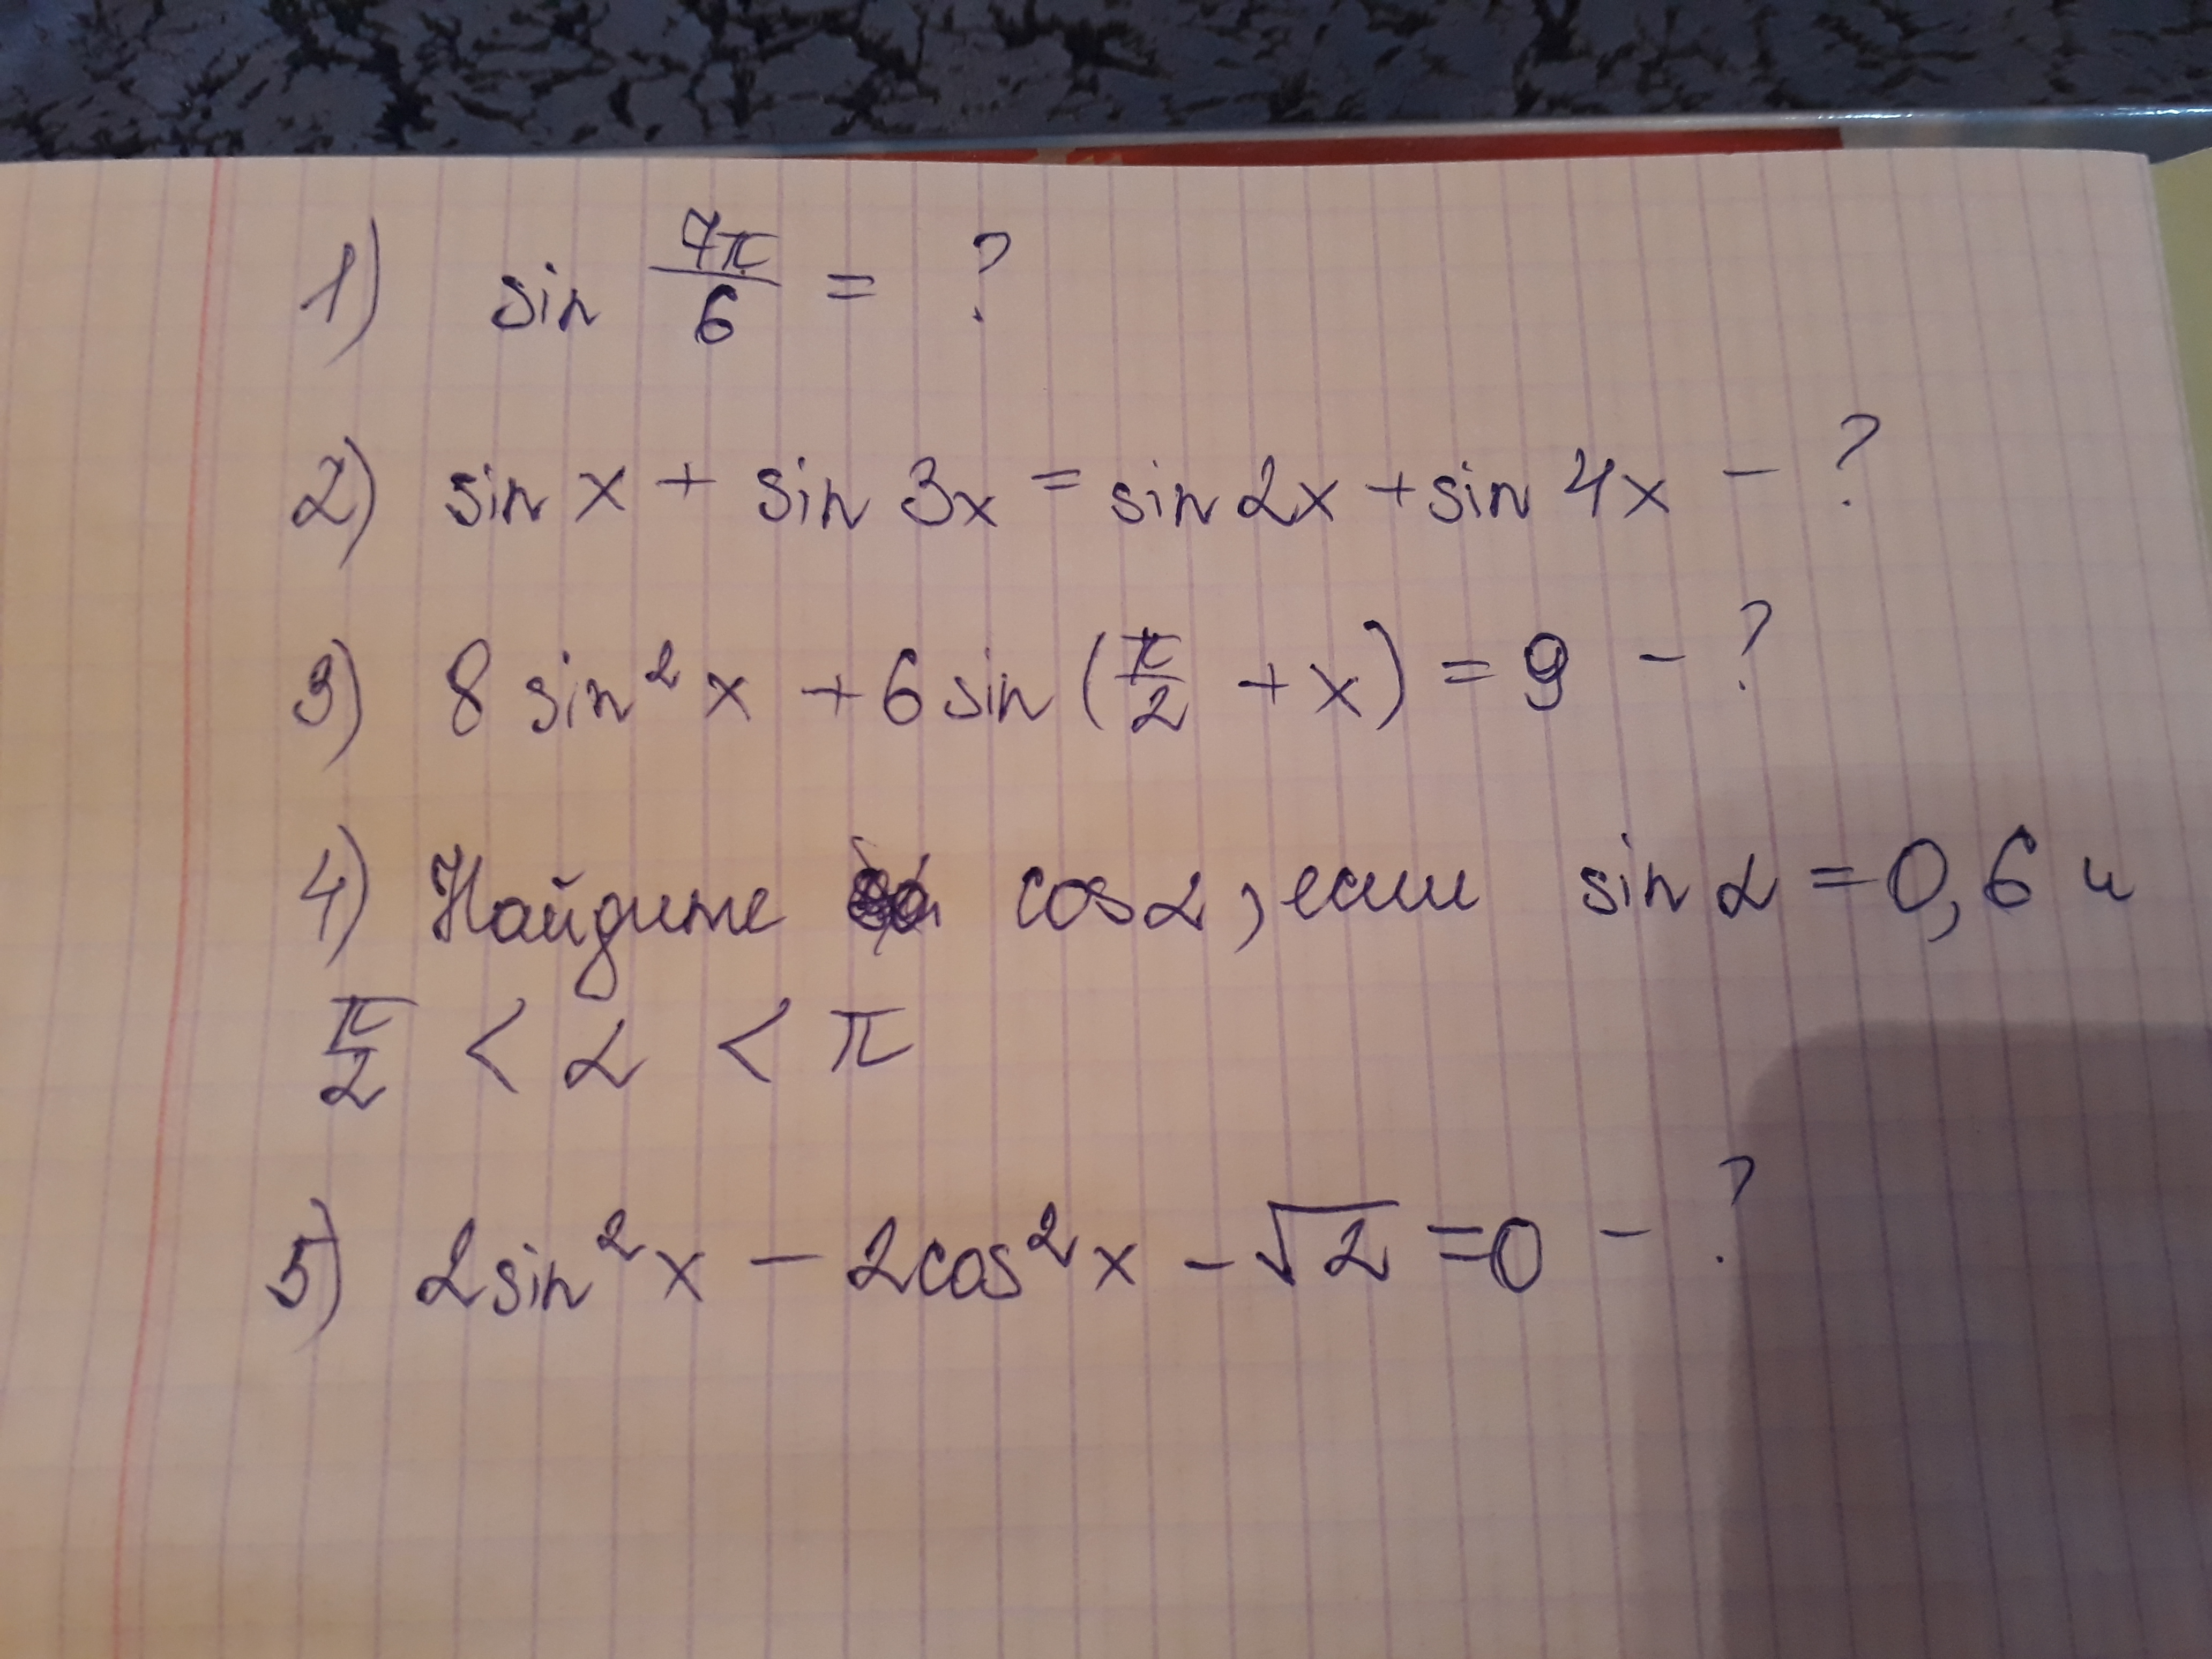 1) sin 7π/6 = ?
2) sin x + sin 3x = sin 2x + sin 4x - ?
3) 8 sin² x + 6 sin (π/2 + x) = 9 - ?
4) Найдите cos α, если sin α = 0,6 и
π/2 < α < π
5) 2sin² x - 2cos² x - √2 = 0 - ?